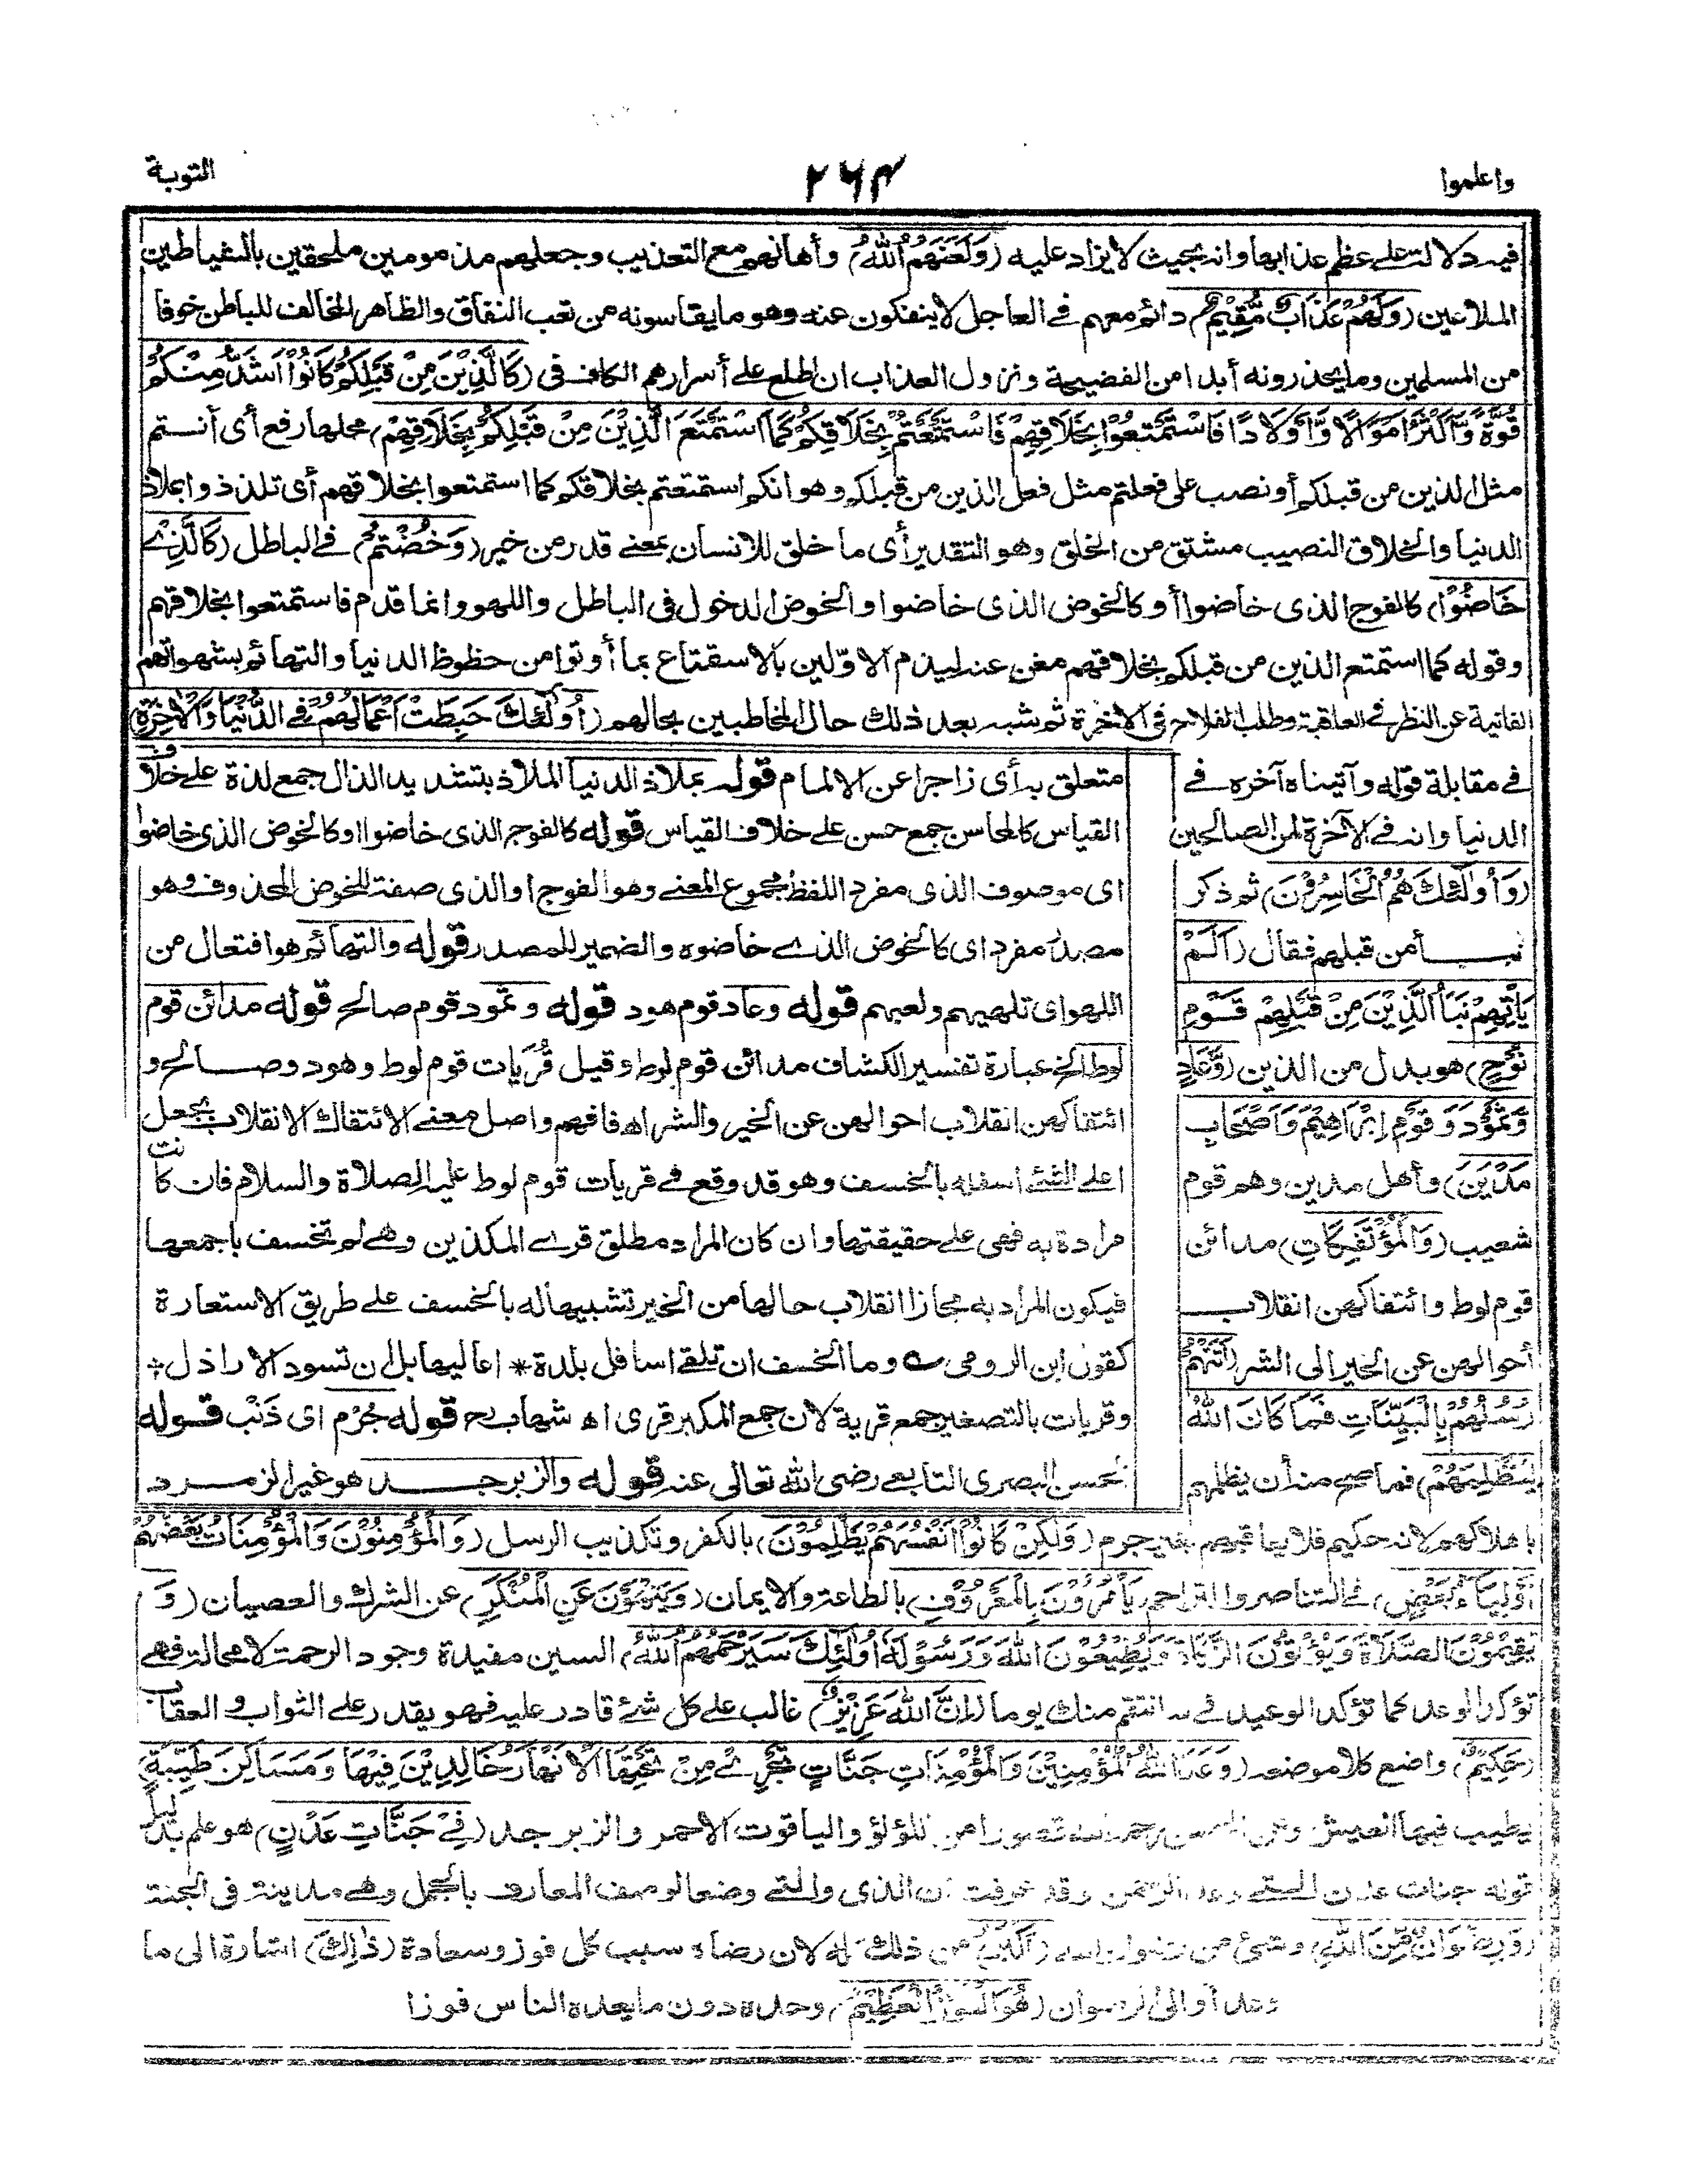 واعلموا
٢٦٤
التوبة
فيه دلالة على عظم عذابها وانه بحيث لا يزاد عليه (وَلَعَنَهُمُ اللّٰهُ) وأهانهم مع التعذيب وجعلهم مذمومين ملحقين بالشياطين
الملاعين (وَلَهُمْ عَذَابٌ مُّقِيْمٌ) دائم معهم فى العاجل لا ينفكون عنه وهو ما يقاسونه من تعب النفاق والظاهر المخالف للباطن خوفا
من المسلمين وما يحذرونه أبدا من الفضيحة ونزول العذاب ان اطلع على أسرارهم الكاف فى (كَالَّذِيْنَ مِنْ قَبْلِكُمْ كَانُوْا اَشَدَّ مِنْكُمْ
قُوَّةً وَّاَكْثَرَ اَمْوَالًا وَّاَوْلَادًا فَاسْتَمْتَعُوْا بِخَلَاقِهِمْ فَاسْتَمْتَعْتُمْ بِخَلَاقِكُمْ كَمَا اسْتَمْتَعَ الَّذِيْنَ مِنْ قَبْلِكُمْ بِخَلَاقِهِمْ) محلها رفع أى أنتم
مثل الذين من قبلكم أو نصب على فعلتم مثل فعل الذين من قبلكم وهو انكم استمتعتم بخلاقكم كما استمتعوا بخلاقهم أى تلذذوا بملاذ
الدنيا والخلاق النصيب مشتق من الخلق وهو التقدير أى ما خلق للانسان بمعنى قدر من خير (وَخُضْتُمْ) فى الباطل (كَالَّذِىْ
خَاضُوْا) كالفوج الذى خاضوا أو كالخوض الذى خاضوا والخوض الدخول فى الباطل واللهو وانما قدم فاستمتعوا بخلاقهم
وقوله كما استمتع الذين من قبلكم بخلاقهم مغن عنه ليذم الاوّلين بالاستمتاع بما أوتوا من حظوظ الدنيا والتهائهم بشهواتهم
الفانية عن النظر فى العاقبة وطلب الفلاح فى الآخرة ثم شبه بعد ذلك حال المخاطبين بحالهم (اُولٰٓئِكَ حَبِطَتْ اَعْمَالُهُمْ فِى الدُّنْيَا وَالْاٰخِرَةِ)
فى مقابلة قوله وآتيناه آجره فى
الدنيا وانه فى الآخرة لمن الصالحين
(وَاُولٰٓئِكَ هُمُ الْخَاسِرُوْنَ) ثم ذكر
نبــأ من قبلهم فقال (اَلَمْ
يَاْتِهِمْ نَبَاُ الَّذِيْنَ مِنْ قَبْلِهِمْ قَوْمِ
نُوْحٍ) هو بدل من الذين (وَّعَادٍ
وَّثَمُوْدَ وَقَوْمِ اِبْرَاهِيْمَ وَاَصْحَابِ
مَدْيَنَ) وأهل مدين وهم قوم
شعيب (وَالْمُؤْتَفِكَاتِ) مدائن
قوم لوط وائتفاكهن انقلاب
أحوالهن عن الخير الى الشر (اَتَتْهُمْ
رُسُلُهُمْ بِالْبَيِّنَاتِ فَمَا كَانَ اللّٰهُ
لِيَظْلِمَهُمْ) فما صح منه أن يظلمهم
متعلق به أى زاجرا عن الالمام قوله بملاذ الدنيا الملاذ بتشديد الذال جمع لذة على خلاف
القياس كالمحاسن جمع حسن على خلاف القياس قوله كالفوج الذى خاضوا او كالخوض الذى خاضوا
اى موصوف الذى مفرد اللفظ مجموع المعنى وهو الفوج او الذى صفة للخوض المحذوف وهو
مصدر مفرد اى كالخوض الذى خاضوه والضمير للمصدر قوله والتهائهم هو افتعال من
اللهو اى تلهيهم ولعبهم قوله وعاد قوم هود قوله وثمود قوم صالح قوله مدائن قوم
لوط الخ عبارة تفسير الكشاف مدائن قوم لوط وقيل قُرَيَّات قوم لوط وهود وصالح و
ائتفاكهن انقلاب احوالهن عن الخير والشر اه فافهم واصل معنى الائتفاك الانقلاب بجعل
اعلى الشئ اسفله بالخسف وهو قد وقع فى قريات قوم لوط عليه الصلاة والسلام فان كانت
مرادة به فهى على حقيقتها وان كان المراد مطلق قرى المكذبين وهى لم تخسف باجمعها
فيكون المراد به مجازا انقلاب حالها من الخير تشبيها له بالخسف على طريق الاستعارة
كقول ابن الرومى ؎ وما الخسف ان تلقى اسافل بلدة * اعاليها بل ان تسود الاراذل *
وقريات بالتصغير جمع قرية لان جمع المكبر قرى اه شهاب رح قوله جُرْم اى ذَنْب قوله
الحسن البصرى التابعى رضى الله تعالى عنه قوله والزبرجد هو غير الزمرد
باهلاكهم لانه حكيم فلا يعاقبهم بغير جرم (وَلٰكِنْ كَانُوْا اَنْفُسَهُمْ يَظْلِمُوْنَ) بالكفر وتكذيب الرسل (وَالْمُؤْمِنُوْنَ وَالْمُؤْمِنَاتُ بَعْضُهُمْ
اَوْلِيَاءُ بَعْضٍ) فى التناصر والتراحم (يَاْمُرُوْنَ بِالْمَعْرُوْفِ) بالطاعة والايمان (وَيَنْهَوْنَ عَنِ الْمُنْكَرِ) عن الشرك والعصيان (وَ
يُقِيْمُوْنَ الصَّلَاةَ وَيُؤْتُوْنَ الزَّكَاةَ وَيُطِيْعُوْنَ اللّٰهَ وَرَسُوْلَهٗ اُولٰٓئِكَ سَيَرْحَمُهُمُ اللّٰهُ) السين مفيدة وجود الرحمة لا محالة فهى
تؤكد الوعد كما تؤكد الوعيد فى سأنتقم منك يوما (اِنَّ اللّٰهَ عَزِيْزٌ) غالب على كل شئ قادر عليه فهو يقدر على الثواب والعقاب
(حَكِيْمٌ) واضع كلا موضعه (وَعَدَ اللّٰهُ الْمُؤْمِنِيْنَ وَالْمُؤْمِنَاتِ جَنَّاتٍ تَجْرِىْ مِنْ تَحْتِهَا الْاَنْهَارُ خَالِدِيْنَ فِيْهَا وَمَسَاكِنَ طَيِّبَةً)
يطيب فيها العيش وعن الحسن رحمه الله قصورا من اللؤلؤ والياقوت الاحمر والزبرجد (فِىْ جَنَّاتِ عَدْنٍ) هو علم بدليل
قوله جنات عدن التى وعد الرحمن وقد عرفت أن الذى والتى وضعا لوصف المعارف بالجمل وهى مدينة فى الجنة
(وَرِضْوَانٌ مِّنَ اللّٰهِ) وشئ من رضوان الله (اَكْبَرُ) من ذلك كله لان رضاه سبب كل فوز وسعادة (ذٰلِكَ) اشارة الى ما
وعد أو الى الرضوان (هُوَ الْفَوْزُ الْعَظِيْمُ) وحده دون ما يعده الناس فوزا